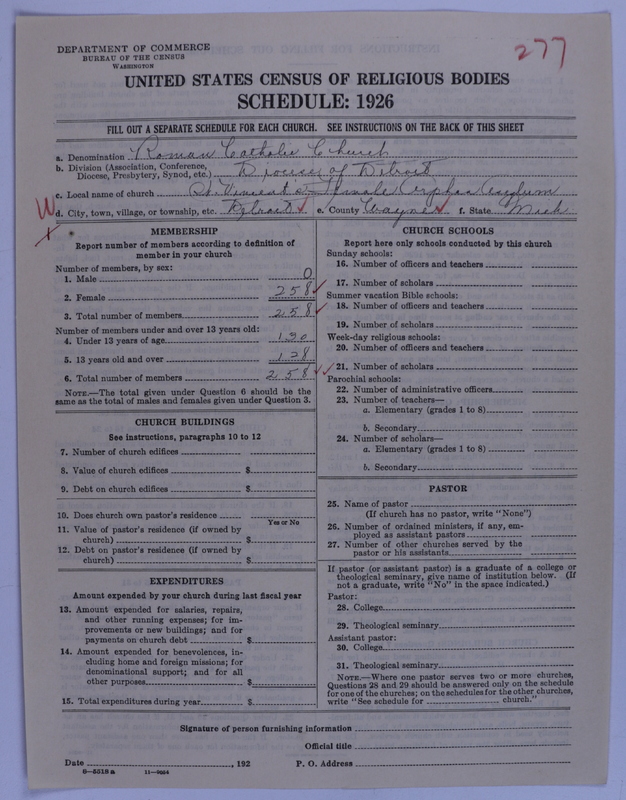 277
DEPARTMENT OF COMMERCE
BUREAU OF THE CENSUS
WASHINGTON
UNITED STATES CENSUS OF RELIGIOUS BODIES
SCHEDULE: 1926
FILL OUT A SEPARATE SCHEDULE FOR EACH CHURCH. SEE INSTRUCTIONS ON THE BACK OF THIS SHEET
a. Denomination Roman Catholic Church
b. Division (Association, Conference, Diocese, Presbytery, Synod, etc.) Diocese of Detroit
c. Local name of church St. Vincent's Female Orphan Asylum
d. City, town, village, or township, etc. Detroit e. County Wayne f. State Mich
MEMBERSHIP
Report number of members according to definition of
member in your church
Number of members, by sex:
1. Male 0
2. Female 258
3. Total number of members 258
Number of members under and over 13 years old:
4. Under 13 years of age 130
5. 13 years old and over 128
6. Total number of members 258
NOTE.—The total given under Question 6 should be the
same as the total of males and females given under Question 3.
CHURCH BUILDINGS
See instructions, paragraphs 10 to 12
7. Number of church edifices
8. Value of church edifices $
9. Debt on church edifices $
10. Does church own pastor's residence
Yes or No
11. Value of pastor's residence (if owned by
church) $
12. Debt on pastor's residence (if owned by
church) $
EXPENDITURES
Amount expended by your church during last fiscal year
13. Amount expended for salaries, repairs,
and other running expenses; for im-
provements or new buildings; and for
payments on church debt $
14. Amount expended for benevolences, in-
cluding home and foreign missions; for
denominational support; and for all
other purposes $
15. Total expenditures during year $
CHURCH SCHOOLS
Report here only schools conducted by this church
Sunday schools:
16. Number of officers and teachers
17. Number of scholars
Summer vacation Bible schools:
18. Number of officers and teachers
19. Number of scholars
Week-day religious schools:
20. Number of officers and teachers
21. Number of scholars
Parochial schools:
22. Number of administrative officers
23. Number of teachers—
a. Elementary (grades 1 to 8)
b. Secondary
24. Number of scholars—
a. Elementary (grades 1 to 8)
b. Secondary
PASTOR
25. Name of pastor
(If church has no pastor, write "None")
26. Number of ordained ministers, if any, em-
ployed as assistant pastors
27. Number of other churches served by the
pastor or his assistants
If pastor (or assistant pastor) is a graduate of a college or
theological seminary, give name of institution below. (If
not a graduate, write "No" in the space indicated.)
Pastor:
28. College
29. Theological seminary
Assistant pastor:
30. College
31. Theological seminary
NOTE.—Where one pastor serves two or more churches,
Questions 28 and 29 should be answered only on the schedule
for one of the churches; on the schedules for the other churches,
write "See schedule for church."
Signature of person furnishing information
Official title
Date , 192 P. O. Address
8—5518a 11—9034